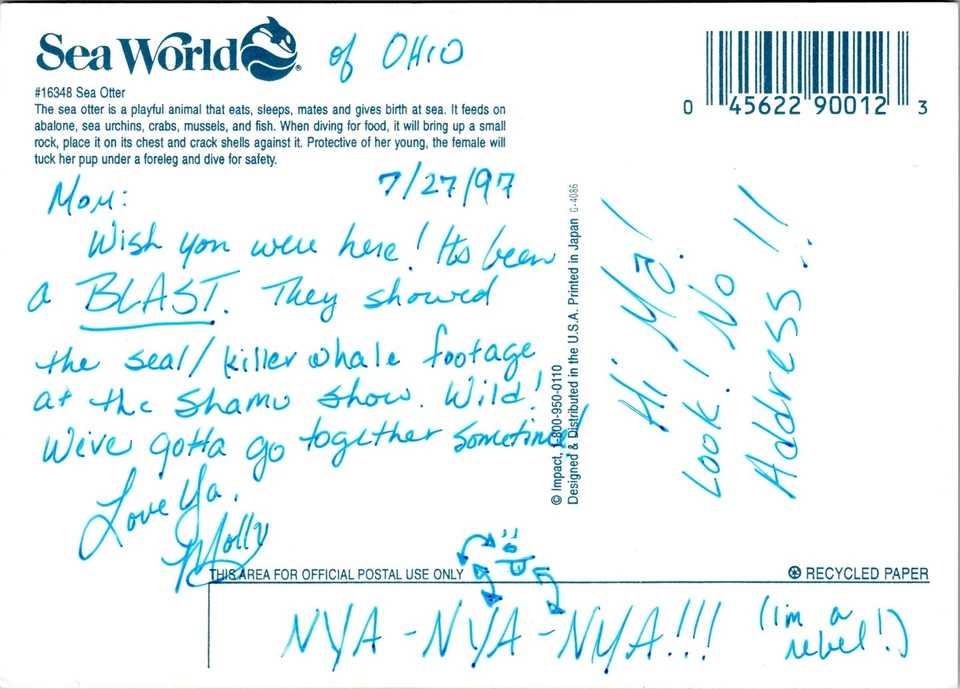 Sea World® of OHIO
#16348 Sea Otter
The sea otter is a playful animal that eats, sleeps, mates and gives birth at sea. It feeds on
abalone, sea urchins, crabs, mussels, and fish. When diving for food, it will bring up a small
rock, place it on its chest and crack shells against it. Protective of her young, the female will
tuck her pup under a foreleg and dive for safety.
0 45622 90012 3
7/27/97
Mom:
Wish you were here! Its been
a BLAST. They showed
the seal/killer whale footage
at the Shamu show. Wild!
We've gotta go together sometime!
Love Ya,
Molly
© Impact, 1-800-950-0110
Designed & Distributed in the U.S.A. Printed in Japan G-4086
Hi Ma!
Look! No
Address!!
THIS AREA FOR OFFICIAL POSTAL USE ONLY
RECYCLED PAPER
NYA-NYA-NYA!!!
(I'm a
rebel!)